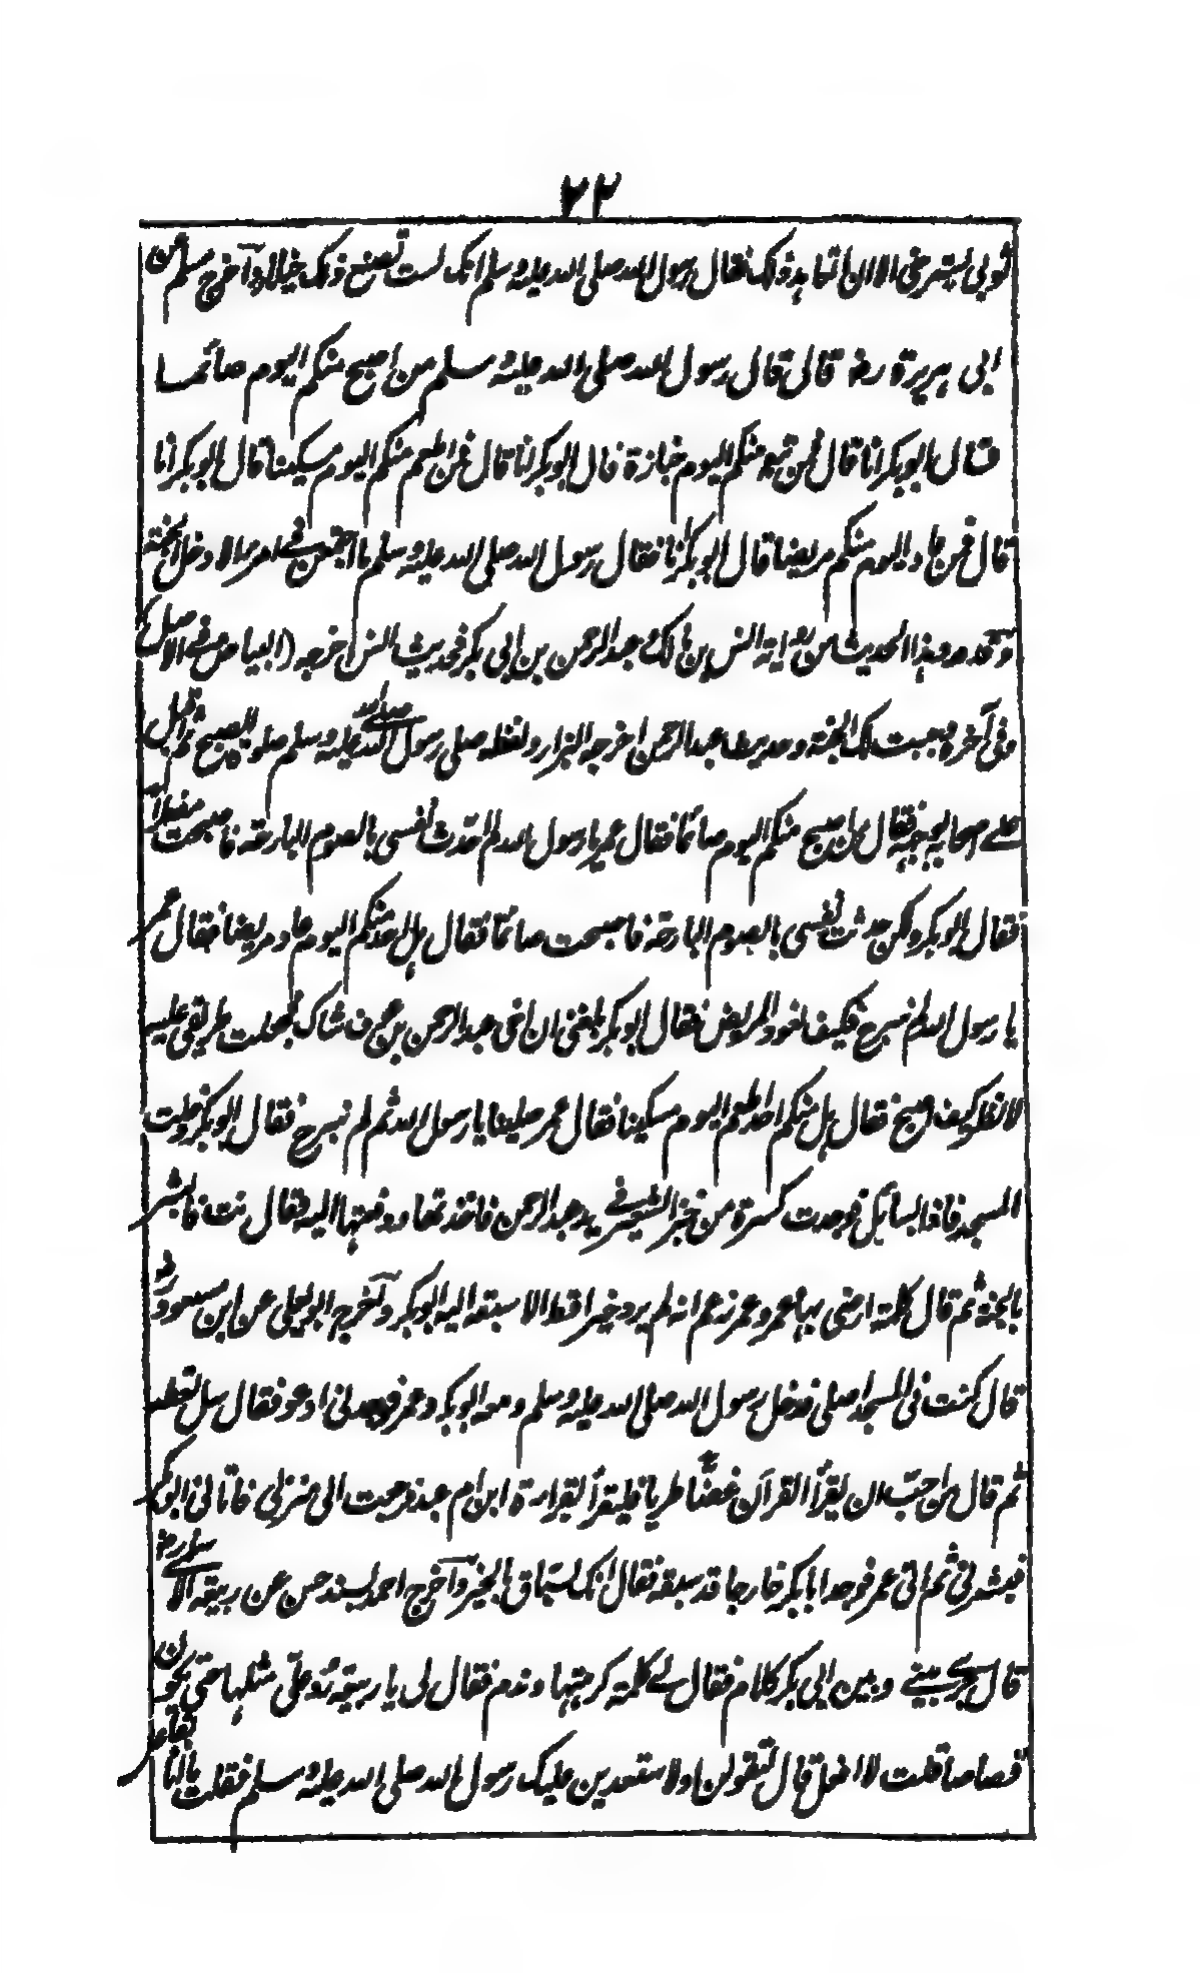 ٢٢
ثوبي يسترخي الا ان اتعاهد ذلك فقال رسول الله صلى الله عليه وسلم انك لست تصنع ذلك خيلاء وآخرج مسلم عن
ابى هريرة رضـ قال قال رسول الله صلى الله عليه وسلم من اصبح منكم اليوم صائما
فقال ابو بكر انا قال فمن تبع منكم اليوم جنازة قال ابو بكر انا قال فمن اطعم منكم اليوم مسكينا قال ابو بكر انا
قال فمن عاد اليوم منكم مريضا قال ابو بكر انا فقال رسول الله صلى الله عليه وسلم ما اجتمعن فے امرء الا دخل الجنة
وقد ورد هذا الحديث من رواية انس بن مالك و عبد الرحمن بن ابى بكر فحديث انس اخرجه (البياض فے الاصل)
وفى آخره وجبت لك الجنة وحديث عبد الرحمن اخرجه البزار ولفظه صلى رسول الله صلے الله عليه وسلم صلوة الصبح ثم اقبل
علے اصحابه بوجهه فقال من اصبح منكم اليوم صائما فقال عمر يا رسول الله لم احدث نفسى بالصوم البارحة فاصبحت مفطرا
فقال ابو بكر ولكن حدثت نفسى بالصوم البارحة فاصبحت صائما فقال هل احد منكم اليوم عاد مريضا فقال عمر
يا رسول الله لم نبرح فكيف نعود المريض فقال ابو بكر بلغنى ان اخى عبد الرحمن بن عوف شاك فجعلت طريقى عليه
لانظر كيف اصبح فقال هل منكم احد اطعم اليوم مسكينا فقال عمر صلينا يا رسول الله ثم لم نبرح فقال ابو بكر دخلت
المسجد فاذا بسائل فوجدت كسرة من خبز الشعير فے يد عبد الرحمن فاخذتها ودفعتها اليه فقال انت فابشر
بالجنة ثم قال كلمة ارضى بها عمر وعمر زعم انه لم يرد خيرا قط الا سبقه اليه ابو بكر وآخرج ابو يعلى عن ابن مسعود رضـ
قال كنت فى المسجد اصلى فدخل رسول الله صلى الله عليه وسلم ومعه ابو بكر وعمر فوجدنى ادعو فقال سل تعطه
ثم قال من احبّ ان يقرأ القرآن غضّا طريا فليقرأ بقراءة ابن ام عبد فرجعت الى منزلى فاتانى ابو بكر
فبشرنى ثم اتى عمر فوجد ابا بكر خارجا قد سبقه فقال انك لسباق بالخير وآخرج احمد بسند حسن عن ربيعة الاسلمے رضـ
قال جرے بينے وبين ابى بكر كلام فقال لے كلمة كرهتها وندم فقال لى يا ربيعة رُد علىّ مثلها حتى يكون
قصاصا قلت لا افعل قال لتقولن او لاستعدين عليك رسول الله صلى الله عليه وسلم فقلت ما انا بفاعل